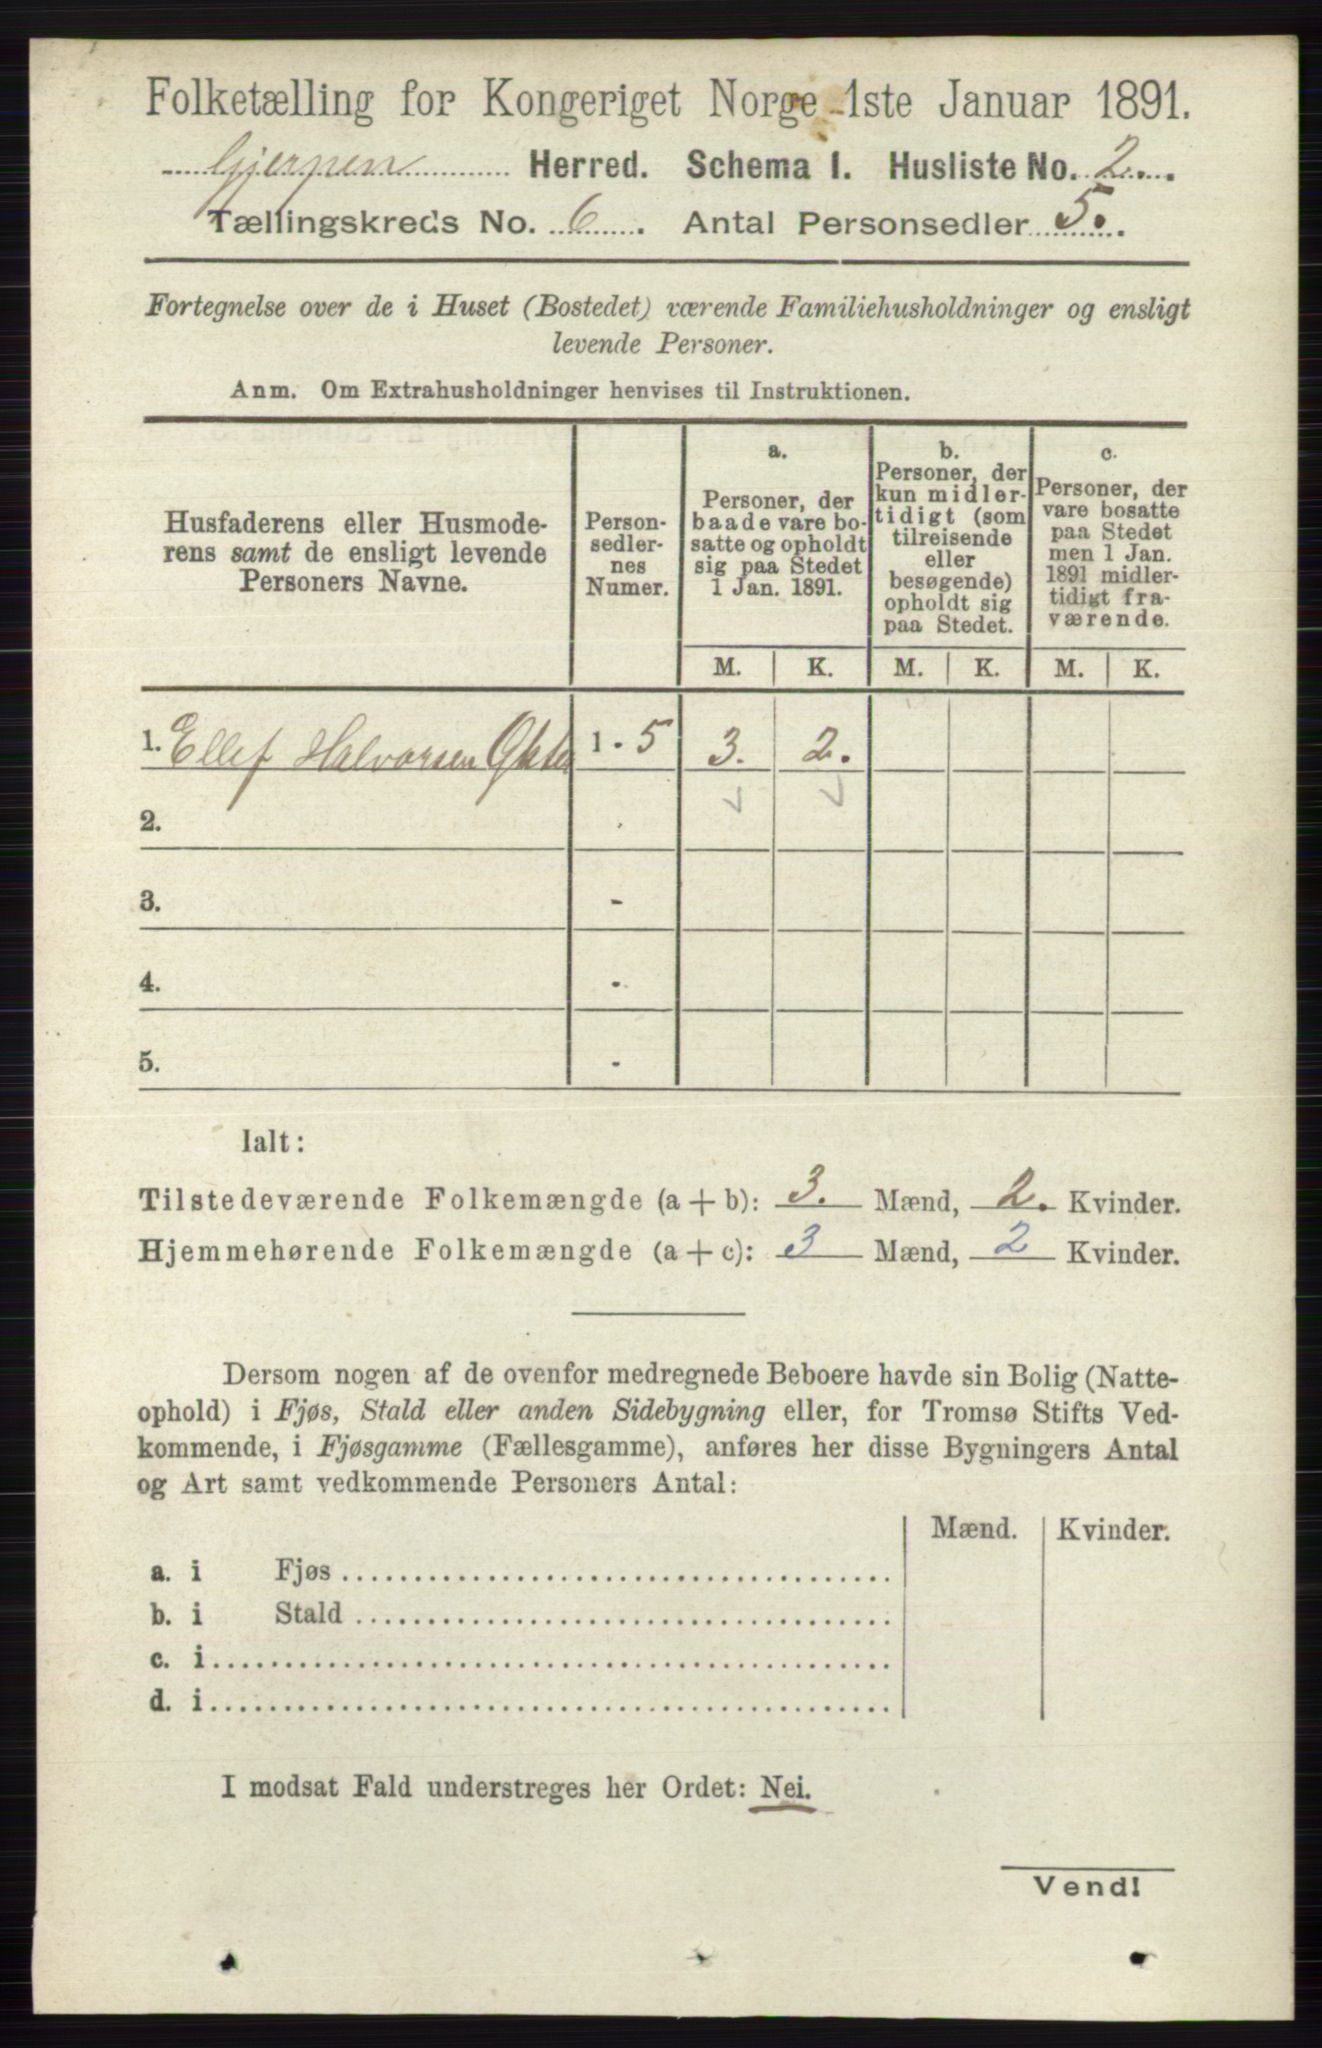 Folketælling for Kongeriget Norge 1ste Januar 1891.
Gjerpen Herred. Schema I. Husliste No. 2.
Tællingskreds No. 6. Antal Personsedler 5.
Fortegnelse over de i Huset (Bostedet) værende Familiehusholdninger og ensligt
levende Personer.
Anm. Om Extrahusholdninger henvises til Instruktionen.
Husfaderens eller Husmode-
rens samt de ensligt levende
Personers Navne.
Person-
sedler-
nes
Numer.
a.
Personer, der
baade vare bo-
satte og opholdt
sig paa Stedet
1 Jan. 1891.
b.
Personer, der
kun midler-
tidigt (som
tilreisende
eller
besøgende)
opholdt sig
paa Stedet.
c.
Personer, der
vare bosatte
paa Stedet
men 1 Jan.
1891 midler-
tidigt fra-
værende.
M. K. M. K. M. K.
1. Ellef Halvorsen 1 - 5 3. 2.
2. -
3. -
4. -
5. -
Ialt:
Tilstedeværende Folkemængde (a + b): 3. Mænd, 2. Kvinder.
Hjemmehørende Folkemængde (a + c): 3 Mænd, 2 Kvinder.
Dersom nogen af de ovenfor medregnede Beboere havde sin Bolig (Natte-
ophold) i Fjøs, Stald eller anden Sidebygning eller, for Tromsø Stifts Ved-
kommende, i Fjøsgamme (Fællesgamme), anføres her disse Bygningers Antal
og Art samt vedkommende Personers Antal:
Mænd. Kvinder.
a. i Fjøs
b. i Stald
c. i
d. i
I modsat Fald understreges her Ordet: Nei.
Vend!